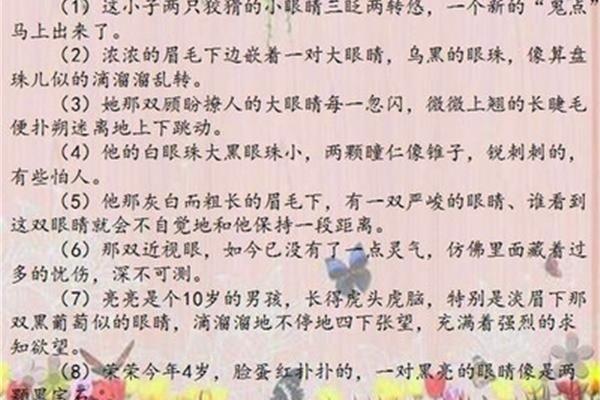 （1）这小子两只狡猾的小眼睛三眨两转悠，一个新的“鬼点”
马上出来了。
（2）浓浓的眉毛下边嵌着一对大眼睛，乌黑的眼珠，像算盘
珠儿似的滴溜溜乱转。
（3）她那双顾盼撩人的大眼睛每一忽闪，微微上翘的长睫毛
便扑朔迷离地上下跳动。
（4）他的白眼珠大黑眼珠小，两颗瞳仁像锥子，锐刺刺的，
有些怕人。
（5）他那灰白而粗长的眉毛下，有一双严峻的眼睛、谁看到
这双眼睛就会不自觉地和他保持一段距离。
（6）那双近视眼，如今已没有了一点灵气，仿佛里面藏着过
多的忧伤，深不可测。
（7）亮亮是个10岁的男孩，长得虎头虎脑，特别是淡眉下那
双黑葡萄似的眼睛，滴溜溜地不停地四下张望，充满着强烈的求
知欲望。
（8）荣荣今年4岁，脸蛋红扑扑的，一对黑亮的眼睛像是两
颗黑宝石